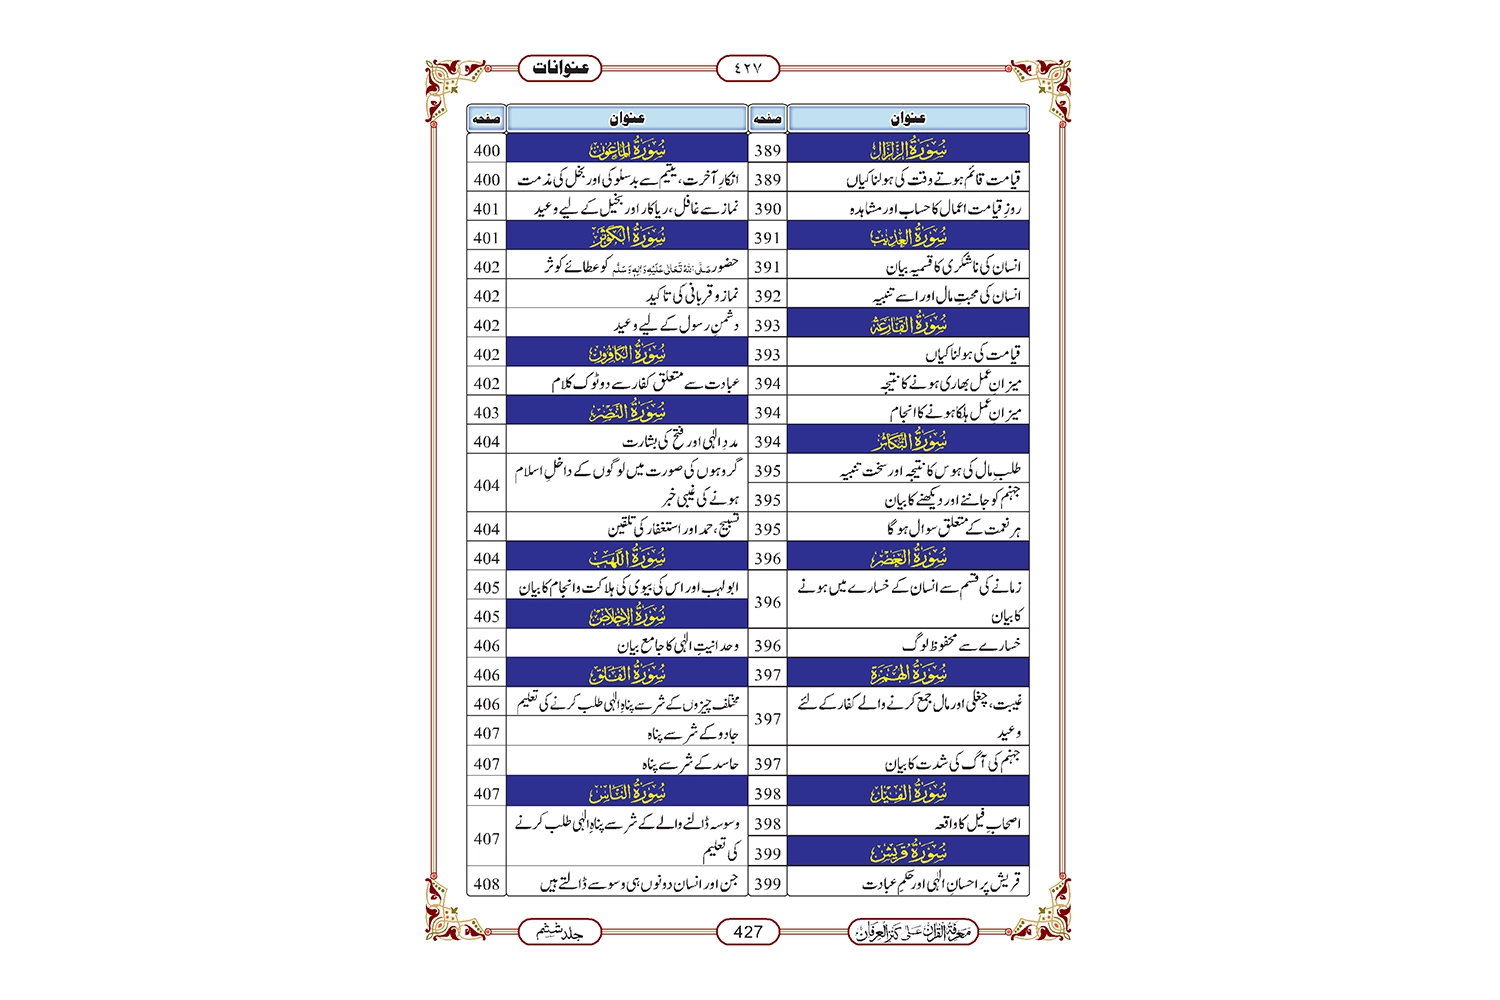 عنوانات
٤٢٧
عنوان صفحه
سُوْرَۃُ الزِّلْزَال 389
قیامت قائم ہوتے وقت کی ہولناکیاں 389
روزِ قیامت اعمال کا حساب اور مشاہدہ 390
سُوْرَۃُ الْعٰدِیٰت 391
انسان کی ناشکری کا قسمیہ بیان 391
انسان کی محبتِ مال اور اسے تنبیہ 392
سُوْرَۃُ الْقَارِعَۃ 393
قیامت کی ہولناکیاں 393
میزانِ عمل بھاری ہونے کا نتیجہ 394
میزانِ عمل ہلکا ہونے کا انجام 394
سُوْرَۃُ التَّکَاثُر 394
طلبِ مال کی ہوس کا نتیجہ اور سخت تنبیہ 395
جہنم کو جاننے اور دیکھنے کا بیان 395
ہر نعمت کے متعلق سوال ہوگا 395
سُوْرَۃُ الْعَصْر 396
زمانے کی قسم سے انسان کے خسارے میں ہونے
کا بیان 396
خسارے سے محفوظ لوگ 396
سُوْرَۃُ الْھُمَزَۃ 397
غیبت، چغلی اور مال جمع کرنے والے کفار کے لئے
وعید 397
جہنم کی آگ کی شدت کا بیان 397
سُوْرَۃُ الْفِیْل 398
اصحابِ فیل کا واقعہ 398
سُوْرَۃُ قُرَیْش 399
قریش پر احسانِ الٰہی اور حکمِ عبادت 399
عنوان صفحه
سُوْرَۃُ الْمَاعُوْن 400
انکارِ آخرت، یتیم سے بدسلوکی اور بخل کی مذمت 400
نماز سے غافل، ریاکار اور بخیل کے لیے وعید 401
سُوْرَۃُ الْکَوْثَر 401
حضور صَلَّی اللہُ تَعَالٰی عَلَیْہِ وَاٰلِہٖ وَسَلَّم کو عطائے کوثر 402
نماز و قربانی کی تاکید 402
دشمنِ رسول کے لیے وعید 402
سُوْرَۃُ الْکَافِرُوْن 402
عبادت سے متعلق کفار سے دو ٹوک کلام 402
سُوْرَۃُ النَّصْر 403
مددِ الٰہی اور فتح کی بشارت 404
گروہوں کی صورت میں لوگوں کے داخلِ اسلام
ہونے کی غیبی خبر 404
تسبیح، حمد اور استغفار کی تلقین 404
سُوْرَۃُ اللَّھَب 404
ابو لہب اور اس کی بیوی کی ہلاکت و انجام کا بیان 405
سُوْرَۃُ الْاِخْلَاص 405
وحدانیتِ الٰہی کا جامع بیان 406
سُوْرَۃُ الْفَلَق 406
مختلف چیزوں کے شر سے پناہِ الٰہی طلب کرنے کی تعلیم 406
جادو کے شر سے پناہ 407
حاسد کے شر سے پناہ 407
سُوْرَۃُ النَّاس 407
وسوسہ ڈالنے والے کے شر سے پناہِ الٰہی طلب کرنے
کی تعلیم 407
جن اور انسان دونوں ہی وسوسے ڈالتے ہیں 408
معرفۃ القرآن علٰی کنز العرفان
427
جلد ششم